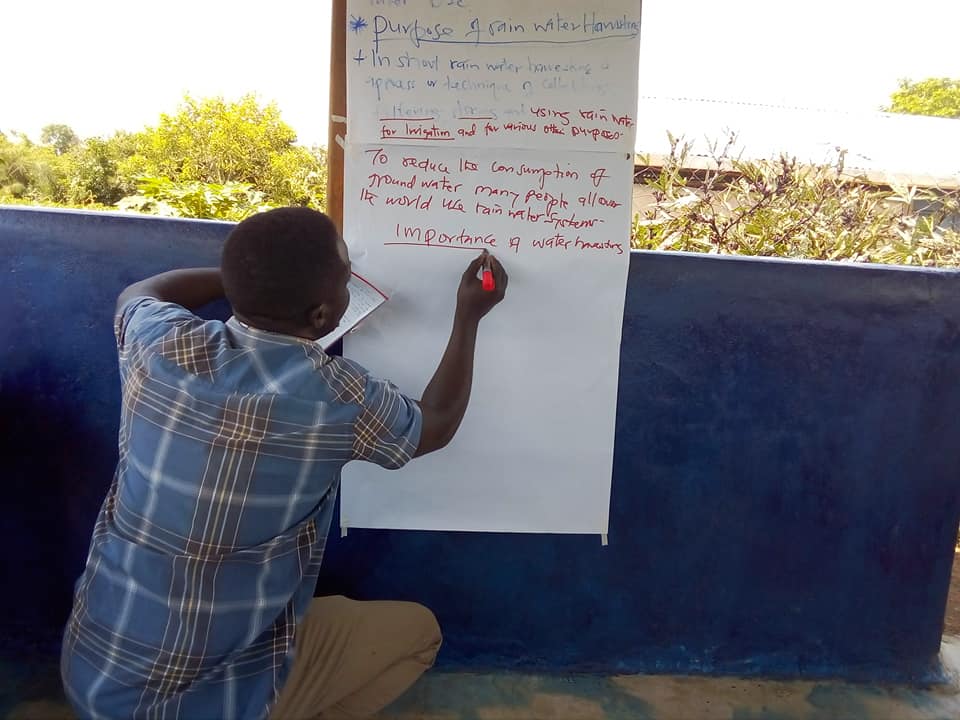 * Purpose of rain water Harvesting
+ In short rain water harvesting is
process or technique of collecting
filtering, storing and using rain water
for Irrigation and for various other purposes.
To reduce the consumption of
ground water many people all over
the world use rain water systems.
Importance of water harvesting